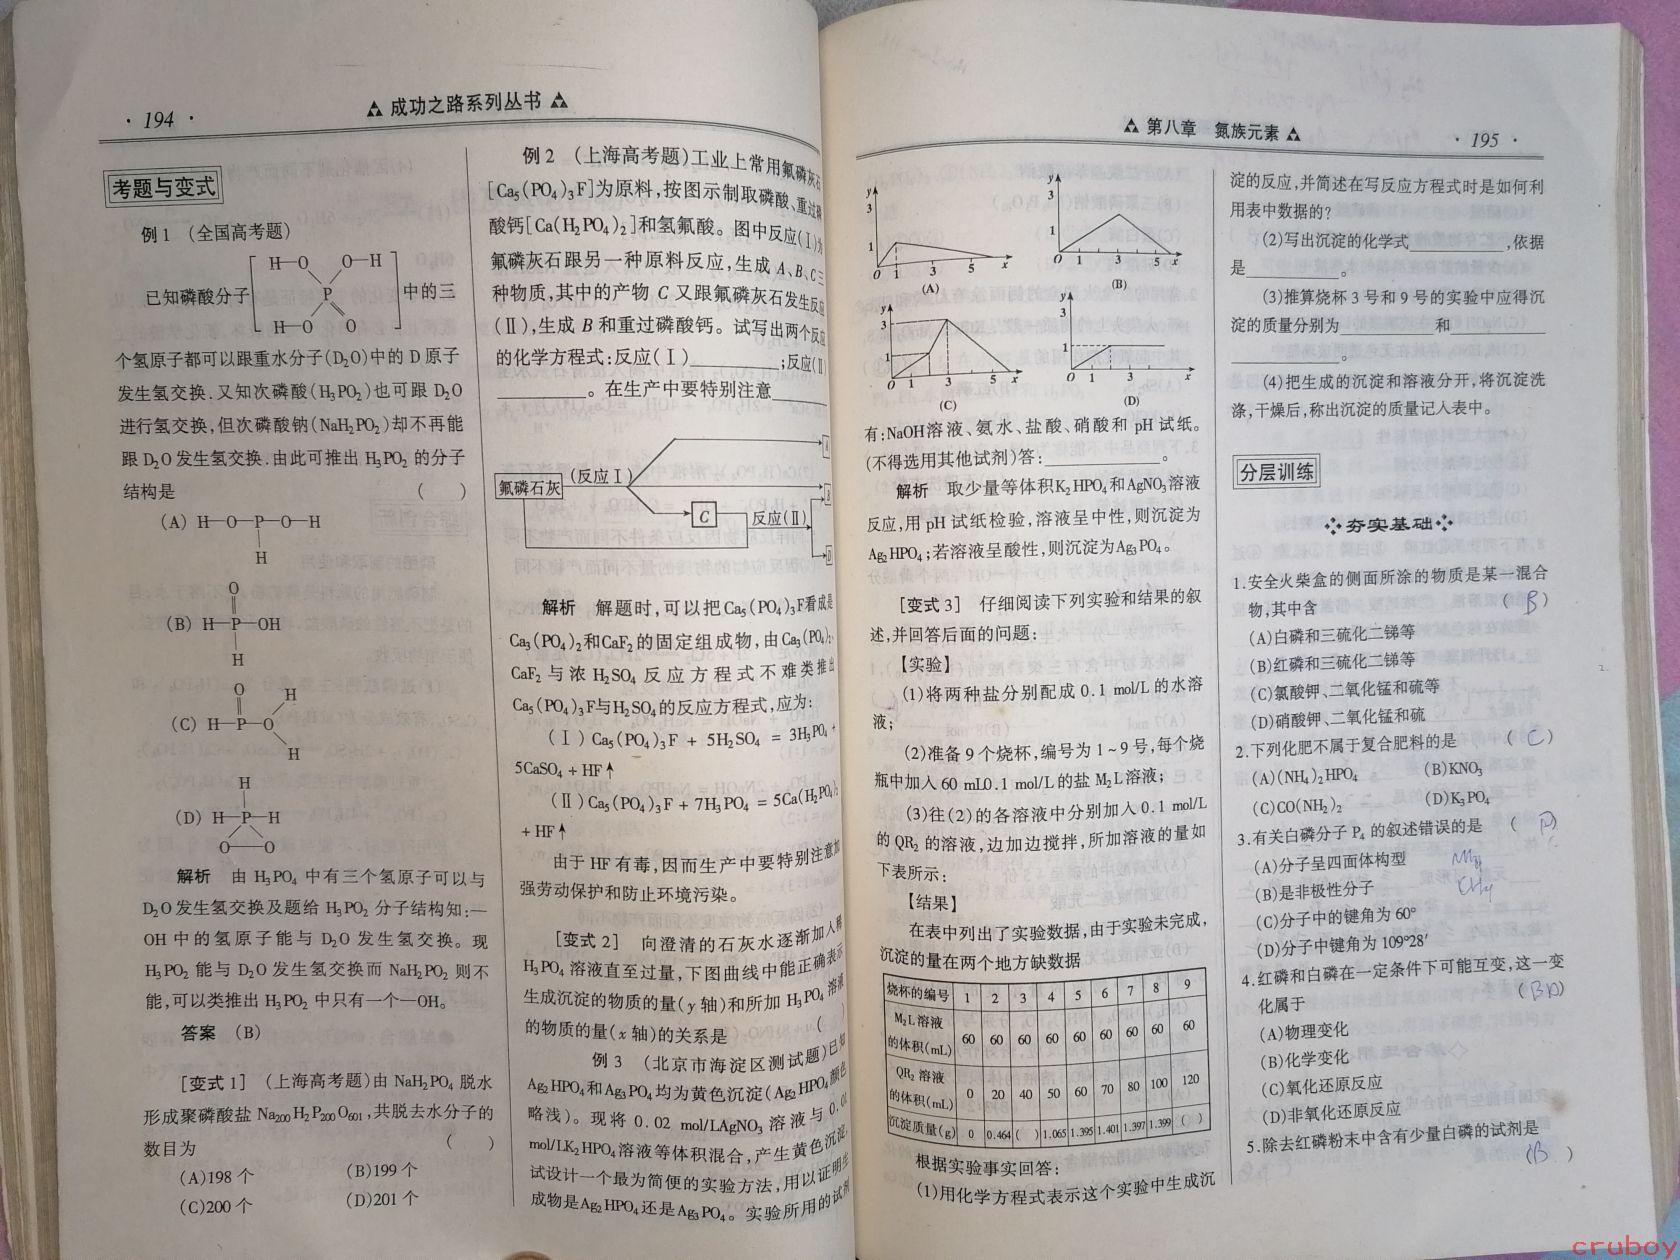 · 194 ·
成功之路系列丛书
考题与变式
例1 (全国高考题)
H—O O—H
已知磷酸分子 P 中的三
H—O O
个氢原子都可以跟重水分子(D₂O)中的 D 原子
发生氢交换.又知次磷酸(H₃PO₂)也可跟 D₂O
进行氢交换,但次磷酸钠(NaH₂PO₂)却不再能
跟 D₂O 发生氢交换.由此可推出 H₃PO₂ 的分子
结构是 ( )
(A) H—O—P—O—H
H
O
(B) H—P—OH
H
O H
(C) H—P—O
H H
H
(D) H—P—H
O—O
解析 由 H₃PO₄ 中有三个氢原子可以与
D₂O发生氢交换及题给 H₃PO₂ 分子结构知:—
OH 中的氢原子能与 D₂O 发生氢交换。现
H₃PO₂ 能与 D₂O 发生氢交换而 NaH₂PO₂ 则不
能,可以类推出 H₃PO₂ 中只有一个—OH。
答案 (B)
[变式1] (上海高考题)由 NaH₂PO₄ 脱水
形成聚磷酸盐 Na₂₀₀H₂P₂₀₀O₆₀₁,共脱去水分子的
数目为 ( )
(A)198 个 (B)199 个
(C)200 个 (D)201 个
例2 (上海高考题)工业上常用氟磷灰石
[Ca₅(PO₄)₃F]为原料,按图示制取磷酸、重过磷
酸钙[Ca(H₂PO₄)₂]和氢氟酸。图中反应(Ⅰ)为
氟磷灰石跟另一种原料反应,生成 A、B、C三
种物质,其中的产物 C 又跟氟磷灰石发生反应
(Ⅱ),生成 B 和重过磷酸钙。试写出两个反应
的化学方程式:反应(Ⅰ)________;反应(Ⅱ)
________。在生产中要特别注意________
A
氟磷石灰 (反应Ⅰ)
B
C 反应(Ⅱ)
D
解析 解题时,可以把Ca₅(PO₄)₃F看成是
Ca₃(PO₄)₂和CaF₂的固定组成物,由Ca₃(PO₄)₂、
CaF₂ 与浓 H₂SO₄ 反应方程式不难类推出
Ca₅(PO₄)₃F与H₂SO₄的反应方程式,应为:
(Ⅰ) Ca₅(PO₄)₃F + 5H₂SO₄ = 3H₃PO₄ +
5CaSO₄ + HF↑
(Ⅱ) Ca₅(PO₄)₃F + 7H₃PO₄ = 5Ca(H₂PO₄)₂
+ HF↑
由于 HF 有毒,因而生产中要特别注意加
强劳动保护和防止环境污染。
[变式2] 向澄清的石灰水逐渐加入稀
H₃PO₄ 溶液直至过量,下图曲线中能正确表示
生成沉淀的物质的量(y 轴)和所加 H₃PO₄ 溶液
的物质的量(x 轴)的关系是 ( )
例3 (北京市海淀区测试题)已知
Ag₂HPO₄和Ag₃PO₄均为黄色沉淀(Ag₂HPO₄颜色
略浅)。现将 0.02 mol/LAgNO₃ 溶液与
mol/LK₂HPO₄溶液等体积混合,产生黄色沉淀,
试设计一个最为简便的实验方法,用以证明生
成物是Ag₂HPO₄还是Ag₃PO₄。实验所用的试剂
第八章 氮族元素
· 195 ·
y 3 1 0 1 3 5 x
(A)
y 3 1 0 1 3 5 x
(B)
y 3 1 0 1 3 5 x
(C)
y 3 1 0 1 3 x
(D)
有:NaOH溶液、氨水、盐酸、硝酸和 pH 试纸。
(不得选用其他试剂)答:________。
解析 取少量等体积K₂HPO₄和AgNO₃溶液
反应,用 pH 试纸检验,溶液呈中性,则沉淀为
Ag₂HPO₄;若溶液呈酸性,则沉淀为Ag₃PO₄。
[变式3] 仔细阅读下列实验和结果的叙
述,并回答后面的问题:
【实验】
(1)将两种盐分别配成 0.1 mol/L 的水溶
液;
(2)准备 9 个烧杯,编号为 1~9 号,每个烧
瓶中加入 60 mL0.1 mol/L 的盐 M₂L 溶液;
(3)往(2)的各溶液中分别加入 0.1 mol/L
的 QR₂ 的溶液,边加边搅拌,所加溶液的量如
下表所示:
【结果】
在表中列出了实验数据,由于实验未完成,
沉淀的量在两个地方缺数据
烧杯的编号 1 2 3 4 5 6 7 8 9
M₂L 溶液
的体积(mL) 60 60 60 60 60 60 60 60 60
QR₂ 溶液
的体积(mL) 0 20 40 50 60 70 80 100 120
沉淀质量(g) 0 0.464 ( ) 1.065 1.395 1.401 1.397 1.399 ( )
根据实验事实回答:
(1)用化学方程式表示这个实验中生成沉
淀的反应,并简述在写反应方程式时是如何利
用表中数据的?
(2)写出沉淀的化学式________,依据
是________。
(3)推算烧杯 3 号和 9 号的实验中应得沉
淀的质量分别为________和________
________。
(4)把生成的沉淀和溶液分开,将沉淀洗
涤,干燥后,称出沉淀的质量记入表中。
分层训练
夯实基础
1.安全火柴盒的侧面所涂的物质是某一混合
物,其中含 ( B )
(A)白磷和三硫化二锑等
(B)红磷和三硫化二锑等
(C)氯酸钾、二氧化锰和硫等
(D)硝酸钾、二氧化锰和硫
2.下列化肥不属于复合肥料的是 ( C )
(A)(NH₄)₂HPO₄ (B)KNO₃
(C)CO(NH₂)₂ (D)K₃PO₄
3.有关白磷分子 P₄ 的叙述错误的是 ( D )
(A)分子呈四面体构型
(B)是非极性分子 CH₄
(C)分子中的键角为 60°
(D)分子中键角为 109°28′
4.红磷和白磷在一定条件下可能互变,这一变
化属于 ( BD )
(A)物理变化
(B)化学变化
(C)氧化还原反应
(D)非氧化还原反应
5.除去红磷粉末中含有少量白磷的试剂是
( B )
cruboy